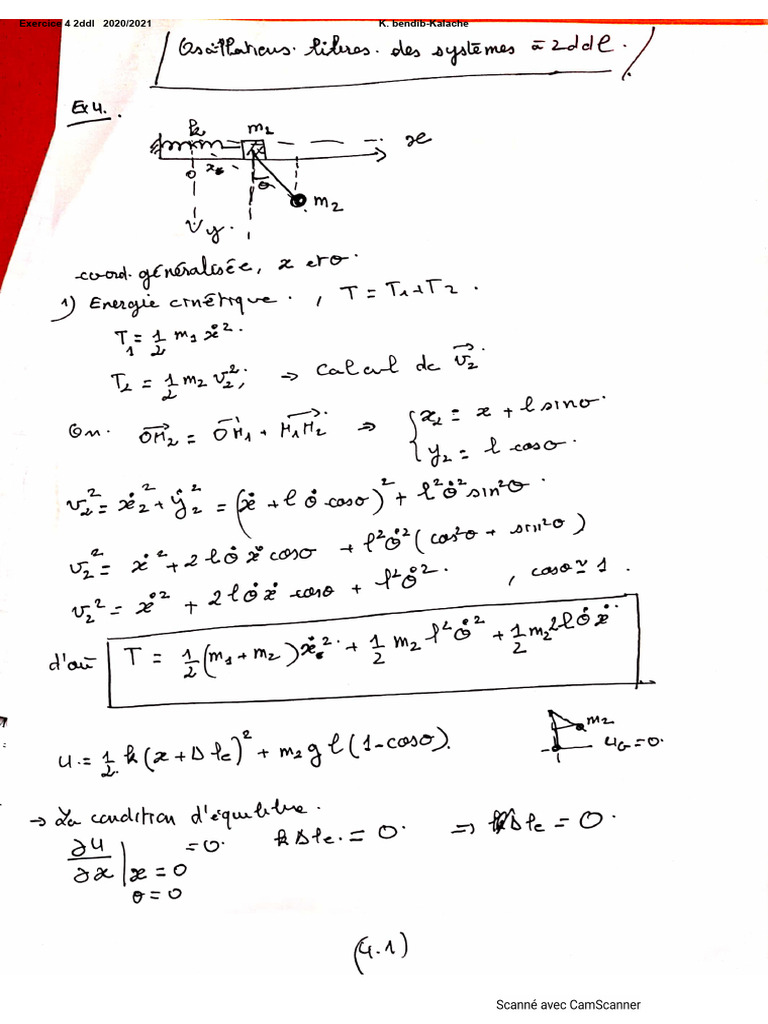 Exercice 4 2ddl 2020/2021 K. bendib-Kalache
Oscillations libres des systèmes à 2ddl.
Ex4.
k m2
x
x
0
θ
m2
y
coord. généralisée, x et θ.
1) Energie cinétique. , T = T1+T2.
T1 = 1/2 m1 ẋ².
T2 = 1/2 m2 v2², → calcul de v⃗2.
On. OM⃗2 = OM⃗1 + M1M⃗2 ⇒ { x2 = x + l sinθ.
y2 = l cosθ.
v2² = ẋ2² + ẏ2² = (ẋ + l θ̇ cosθ)² + l²θ̇² sin²θ.
v2² = ẋ² + 2lθ̇ẋ cosθ + l²θ̇²(cos²θ + sin²θ)
v2² = ẋ² + 2lθ̇ẋ cosθ + l²θ̇². , cosθ ≃ 1.
d'où T = 1/2 (m1+m2) ẋ² + 1/2 m2 l²θ̇² + 1/2 m2 2lθ̇ẋ
m2
U = 1/2 k(x + Δle)² + m2 g l(1-cosθ). UG=0.
→ La condition d'équilibre.
∂U/∂x | x=0 θ=0 =0. kΔle. = 0. ⇒ Δle = 0.
(4.1)
Scanné avec CamScanner